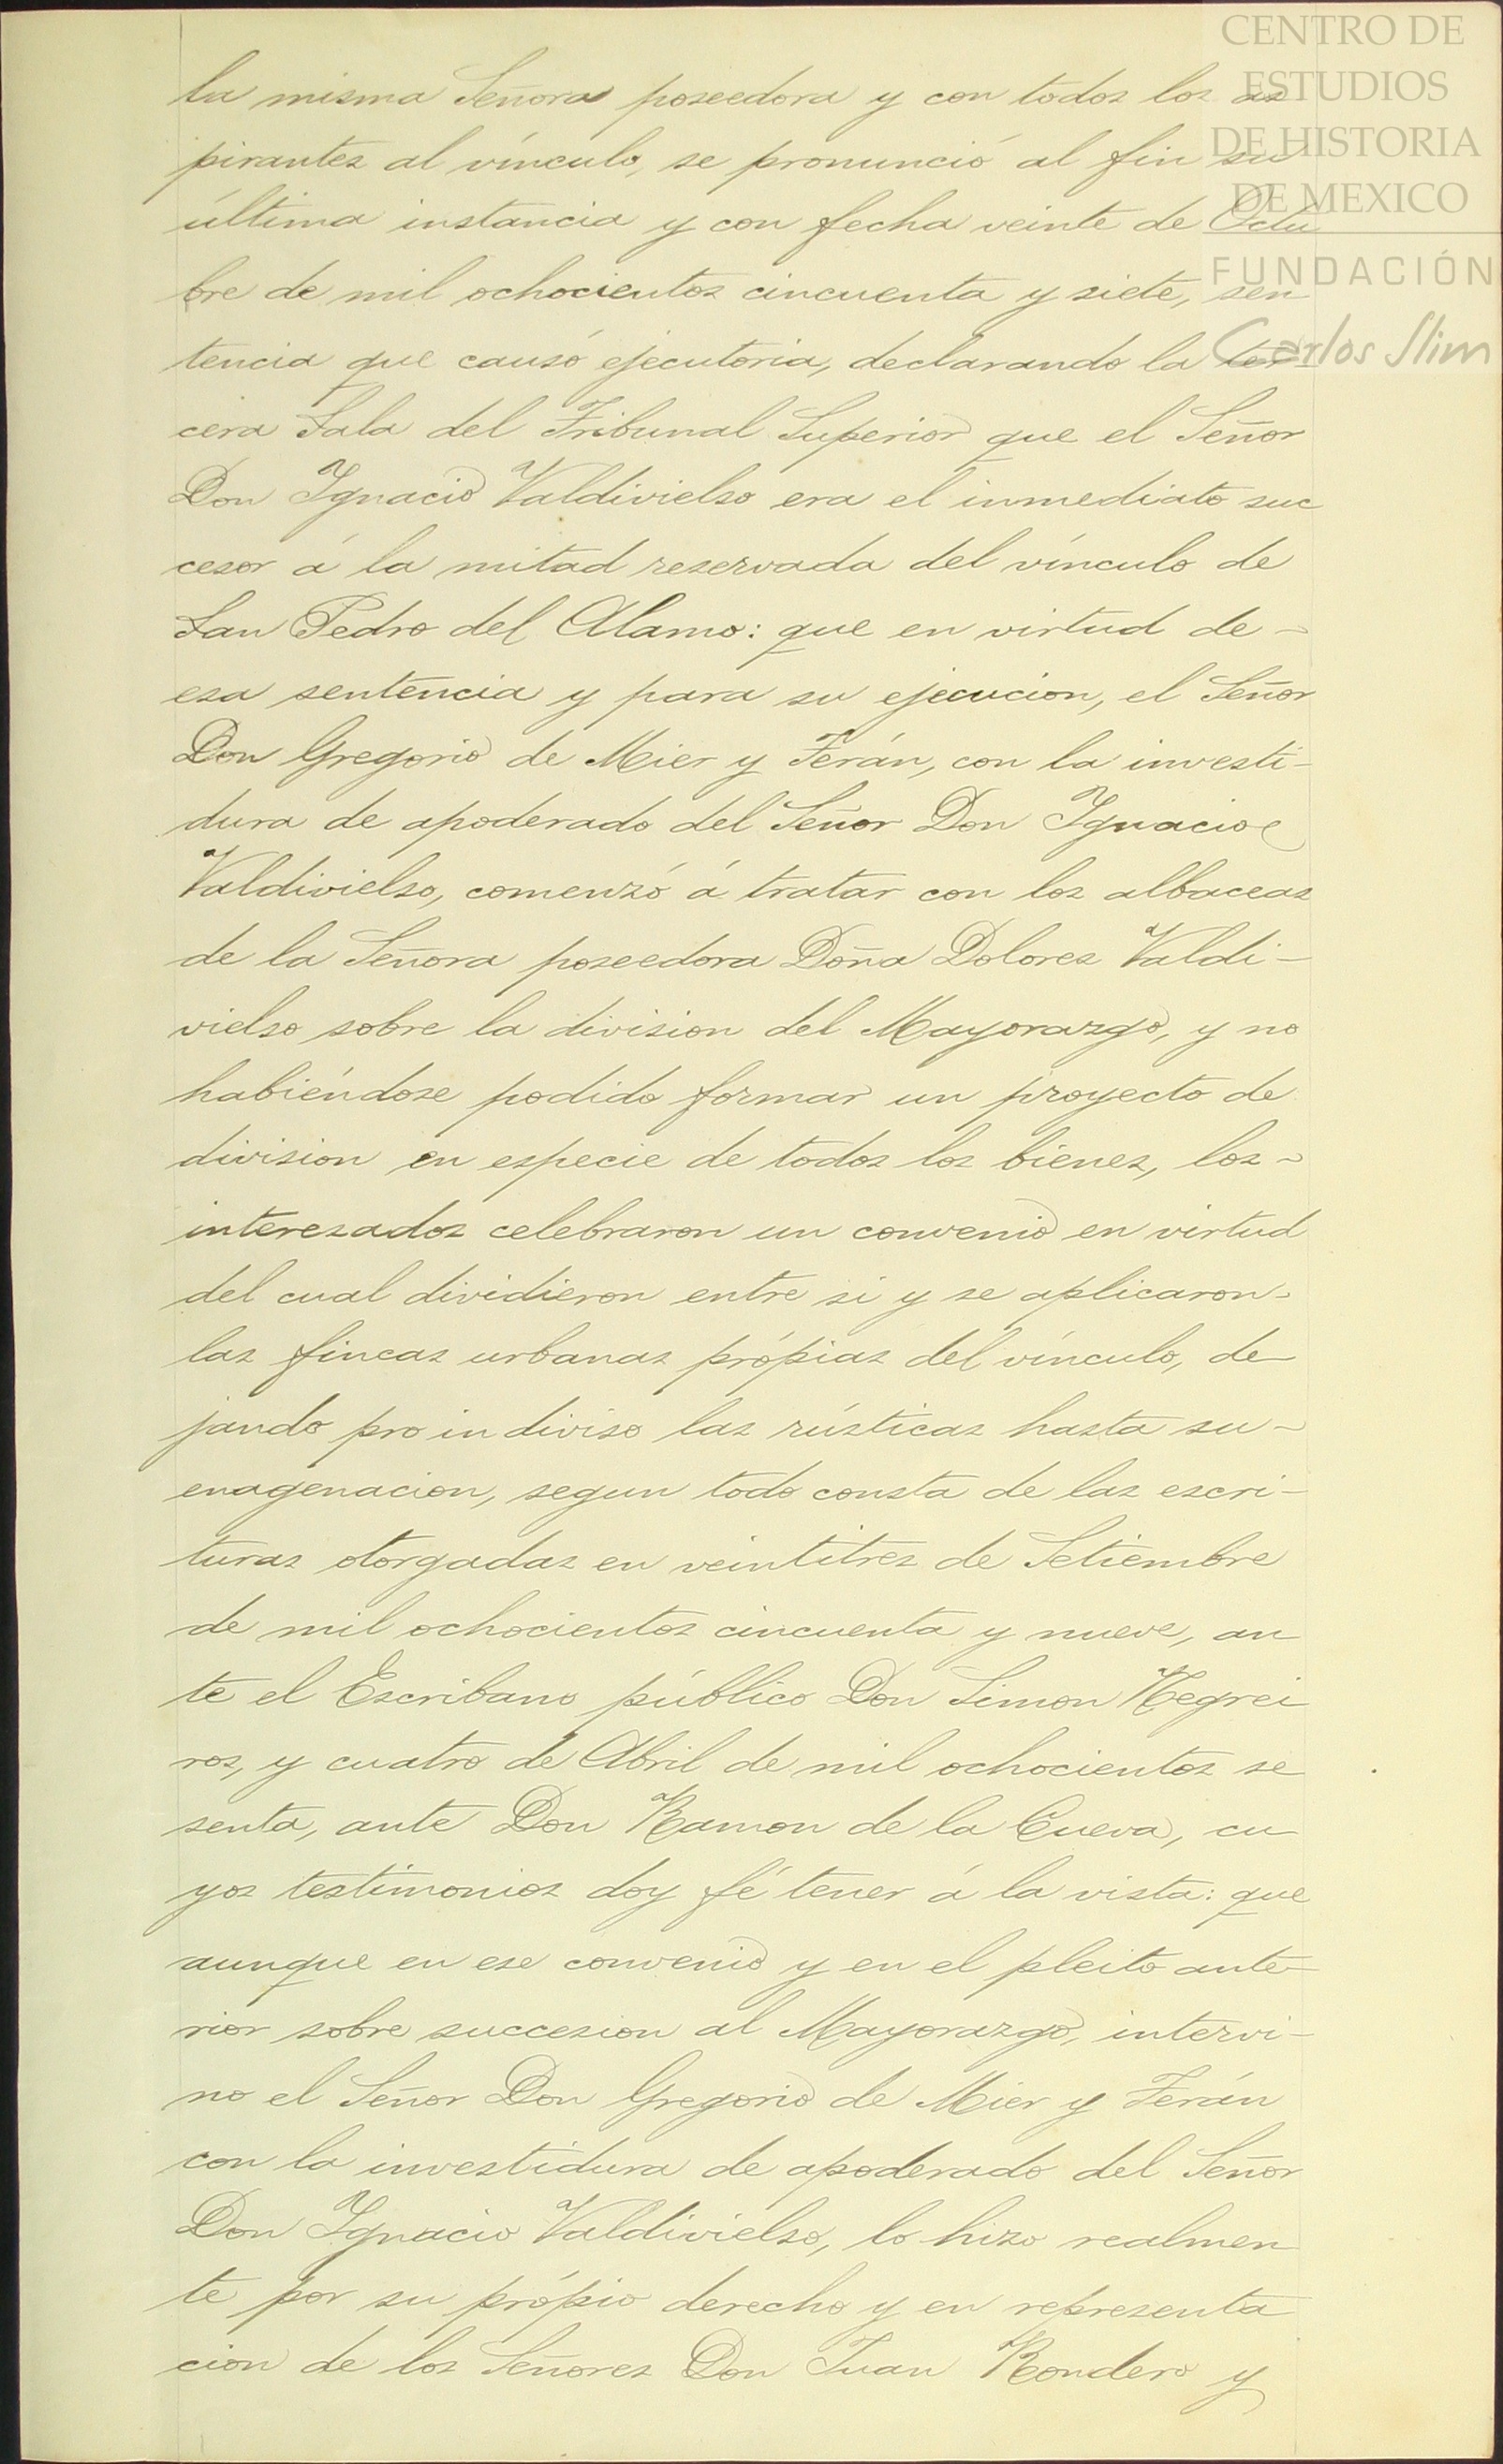 CENTRO DE
ESTUDIOS
DE HISTORIA
DE MEXICO
FUNDACIÓN
Carlos Slim
la misma Señora poseedora y con todos los as
pirantes al vínculo, se pronunció al fin su
última instancia y con fecha veinte de Octu
bre de mil ochocientos cincuenta y siete, sen
tencia que causó ejecutoria, declarando la ter
cera Sala del Tribunal Superior que el Señor
Don Ignacio Valdivielso era el inmediato suc
cesor á la mitad reservada del vínculo de
San Pedro del Alamo: que en virtud de -
esa sentencia y para su ejecucion, el Señor
Don Gregorio de Mier y Terán, con la investi-
dura de apoderado del Señor Don Ignacio
Valdivielso, comenzó á tratar con los albaceas
de la Señora poseedora Doña Dolores Valdi-
vielso sobre la division del Mayorazgo, y no
habiéndose podido formar un proyecto de
division en especie de todos los bienes, los -
interesados celebraron un convenio en virtud
del cual dividieron entre si y se aplicaron -
las fincas urbanas própias del vínculo, de
jando pro indiviso las rústicas hasta su -
enagenacion, segun todo consta de las escri-
turas otorgadas en veintitres de Setiembre
de mil ochocientos cincuenta y nueve, an
te el Escribano público Don Simon Negrei
ros, y cuatro de Abril de mil ochocientos se
senta, ante Don Ramon de la Cueva, cu
yos testimonios doy fé tener á la vista: que
aunque en ese convenio y en el pleito ante-
rior sobre succesion al Mayorazgo, intervi-
no el Señor Don Gregorio de Mier y Terán
con la investidura de apoderado del Señor
Don Ignacio Valdivielso, lo hizo realmen
te por su própio derecho y en representa
cion de los Señores Don Juan Rondero y